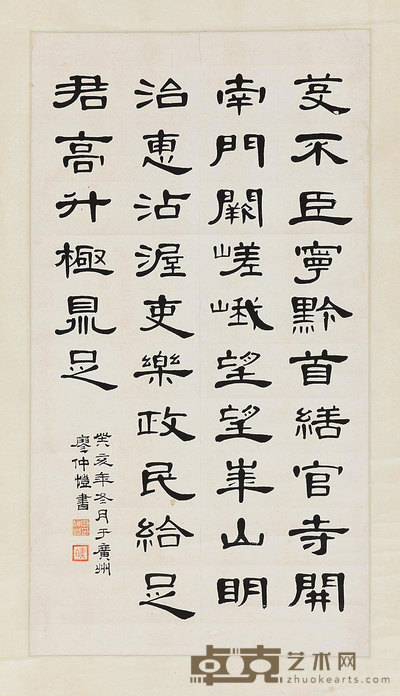 芟不臣寧黔首繕官寺開
南門闕嵯峨望望華山明
治惠沾渥吏樂政民給足
君高升極鼎足
癸亥年冬月于廣州
廖仲愷書
卓克艺术网
zhuokearts.com